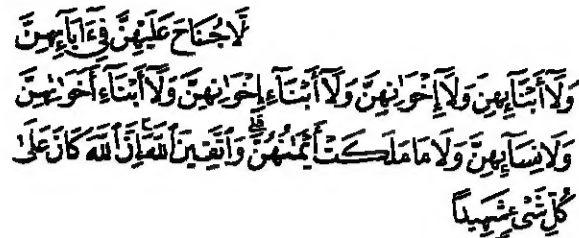 لَّا جُنَاحَ عَلَيْهِنَّ فِىٓ ءَابَآئِهِنَّ
وَلَآ أَبْنَآئِهِنَّ وَلَآ إِخْوَٰنِهِنَّ وَلَآ أَبْنَآءِ إِخْوَٰنِهِنَّ وَلَآ أَبْنَآءِ أَخَوَٰتِهِنَّ
وَلَا نِسَآئِهِنَّ وَلَا مَا مَلَكَتْ أَيْمَٰنُهُنَّ ۗ وَٱتَّقِينَ ٱللَّهَ ۚ إِنَّ ٱللَّهَ كَانَ عَلَىٰ
كُلِّ شَىْءٍ شَهِيدًا